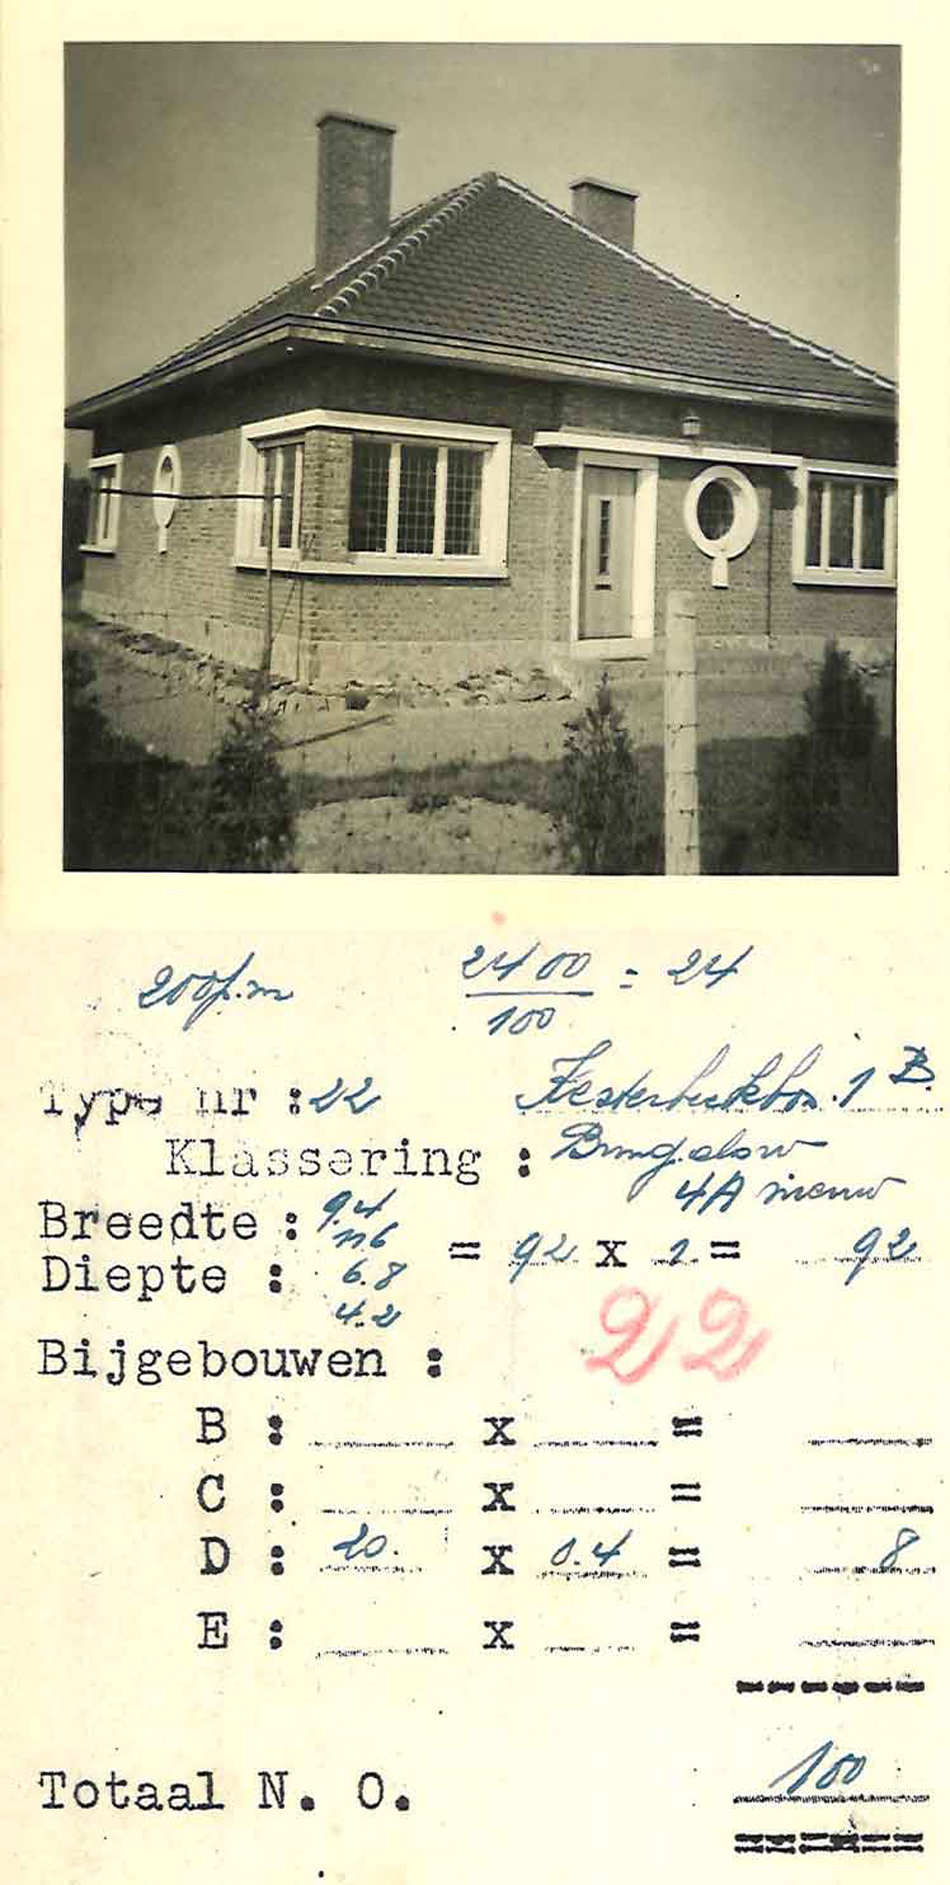 200f.m 2400/100 = 24
Type nr : 22 1 B.
Klassering : Bungalow
4A nieuw
Breedte : 9.4
11.6 = 92 x 1 = 92
Diepte : 6.8
4.2
22
Bijgebouwen :
B : x =
C : x =
D : 20. x 0.4 = 8
E : x =
Totaal N. O. 100